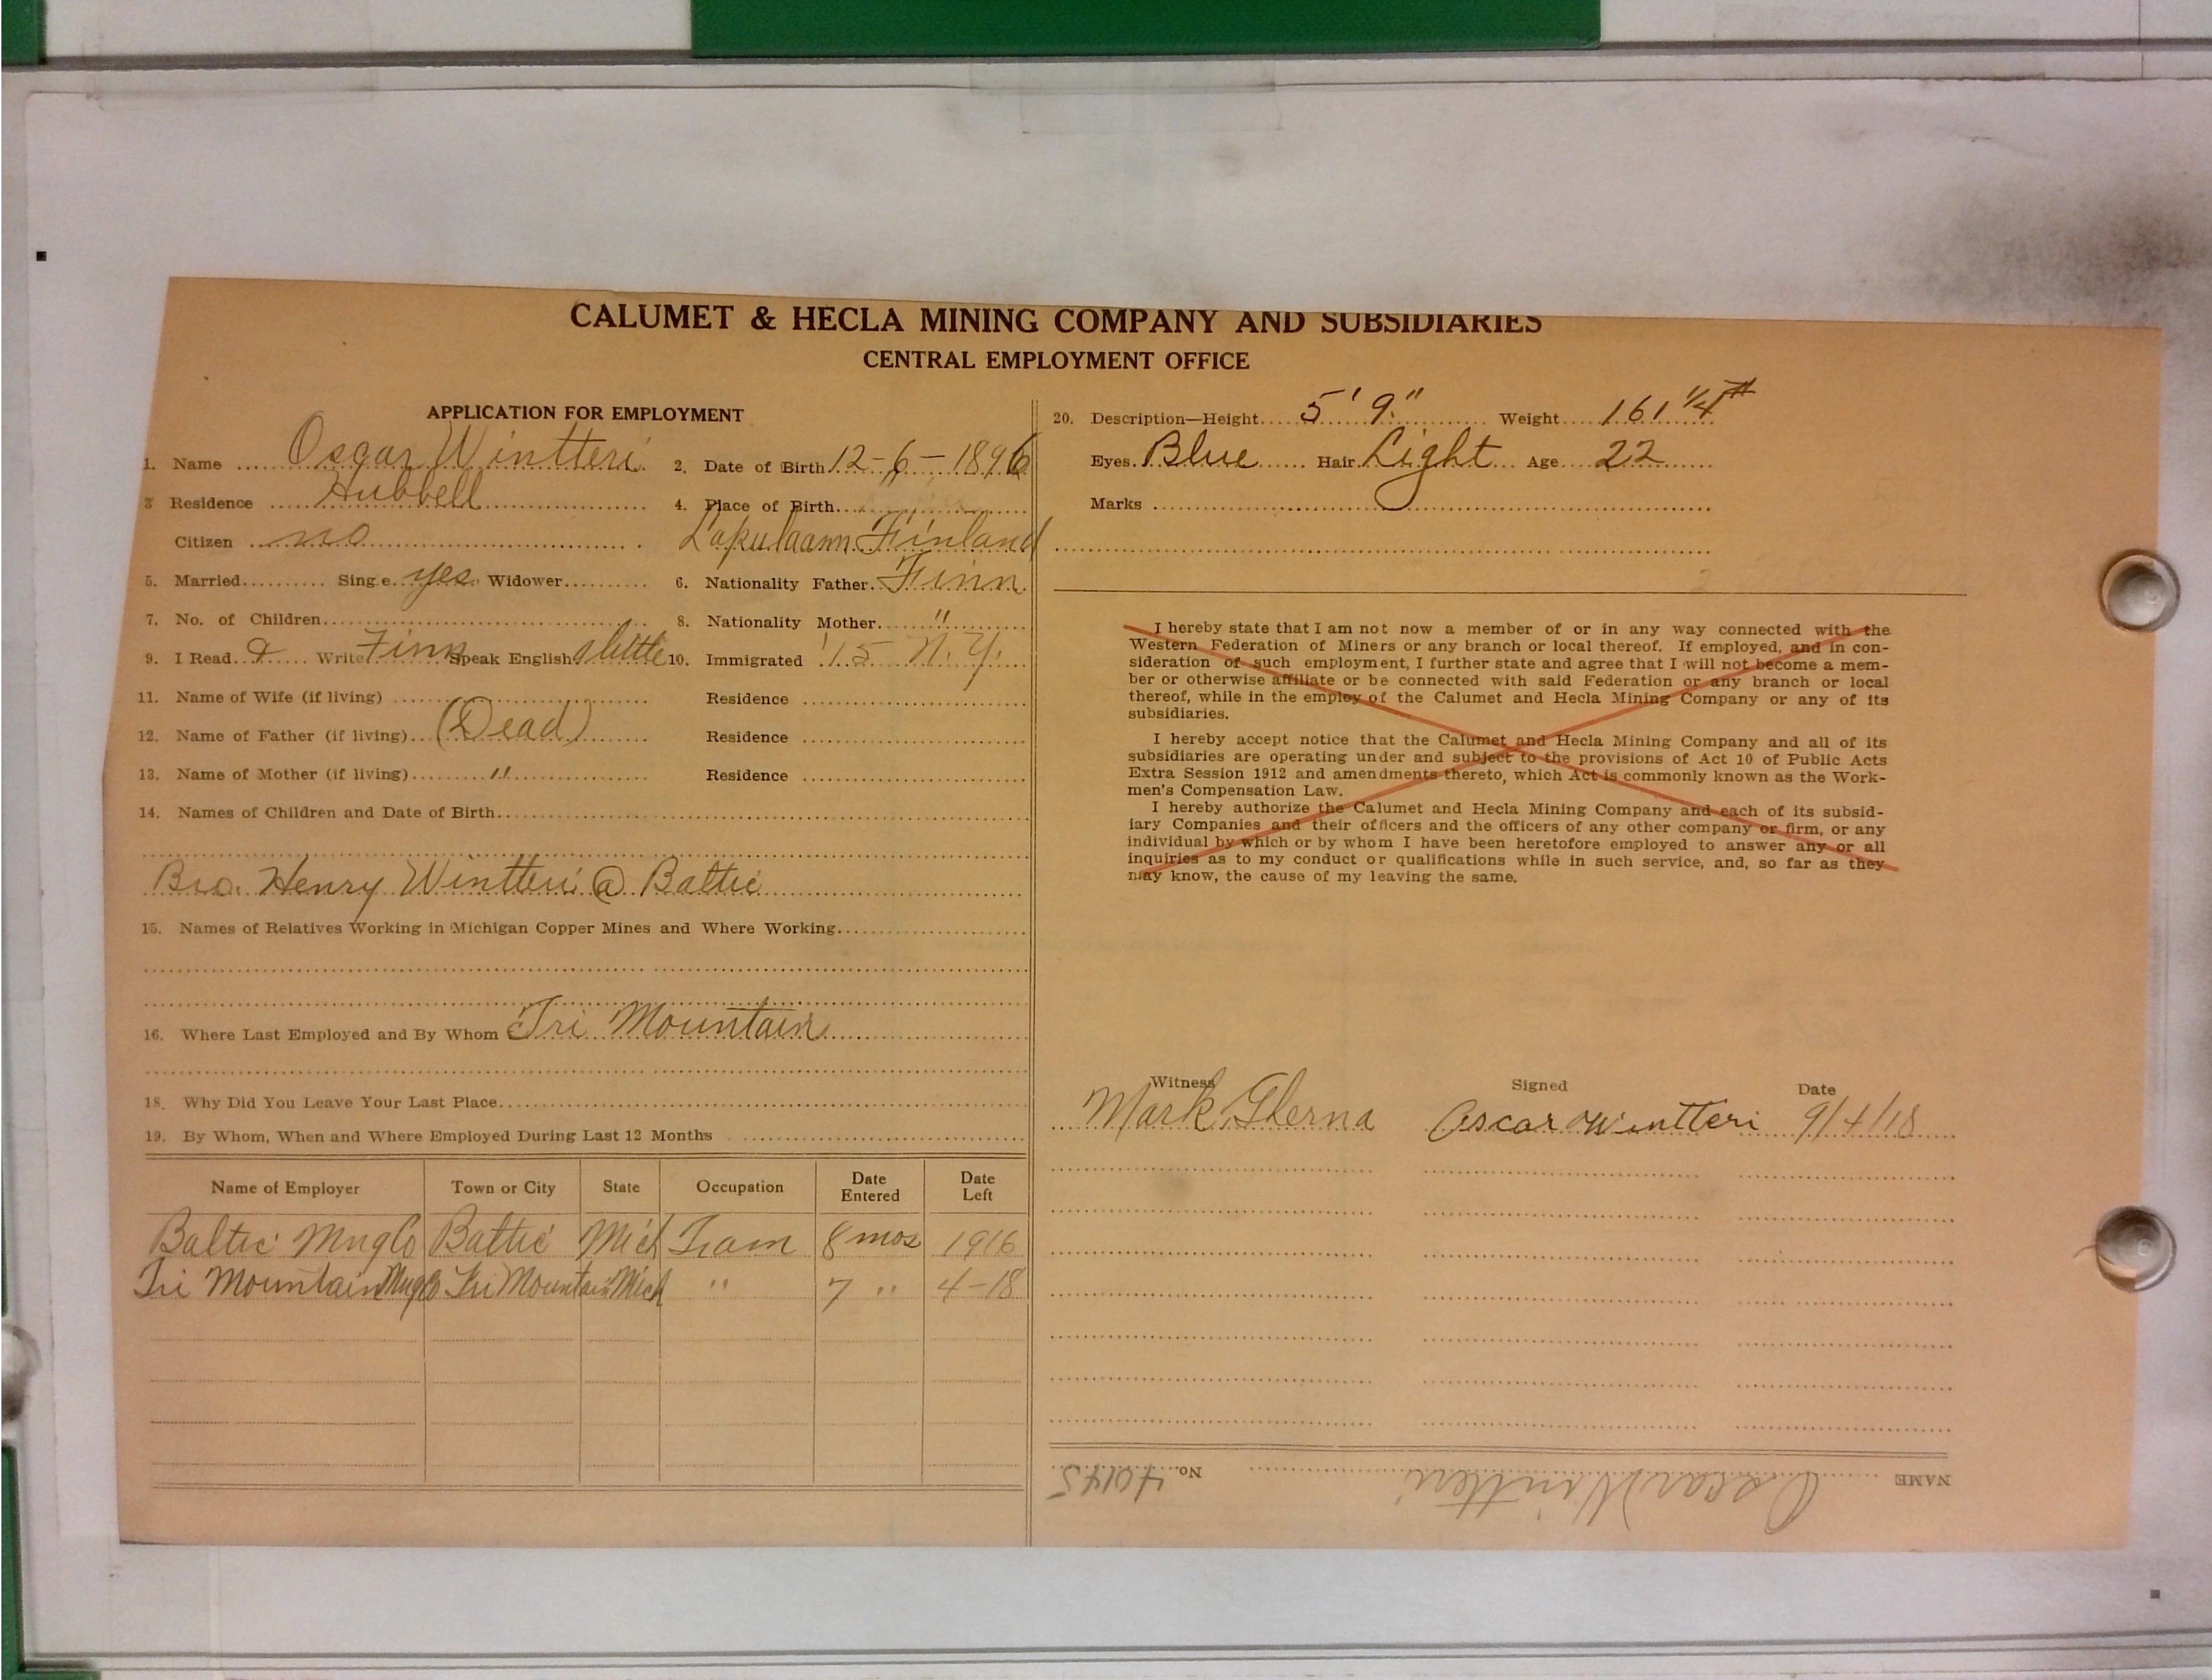 CALUMET & HECLA MINING COMPANY AND SUBSIDIARIES
CENTRAL EMPLOYMENT OFFICE
APPLICATION FOR EMPLOYMENT
1. Name Oscar Wintteri 2. Date of Birth 12-6-1896
3 Residence Hubbell 4. Place of Birth
Citizen no Finland
5. Married Sing.e yes Widower 6. Nationality Father Finn
7. No. of Children 8. Nationality Mother "
9. I Read & Write Finn Speak English slittle 10. Immigrated '15 N.Y.
11. Name of Wife (if living) Residence
12. Name of Father (if living) (Dead) Residence
13. Name of Mother (if living) " Residence
14. Names of Children and Date of Birth
Bro. Henry Wintteri @ Baltic
15. Names of Relatives Working in Michigan Copper Mines and Where Working
16. Where Last Employed and By Whom Tri Mountain
18. Why Did You Leave Your Last Place
19. By Whom, When and Where Employed During Last 12 Months
Name of Employer Town or City State Occupation Date Entered Date Left
Baltic Mng Co Baltic Mich Tram 8 mos 1916
Tri Mountain Mng Co Tri Mountain Mich " 7 " 4-18
20. Description—Height 5' 9" Weight 161 1/4 #
Eyes Blue Hair Light Age 22
Marks
I hereby state that I am not now a member of or in any way connected with the
Western Federation of Miners or any branch or local thereof. If employed, and in con-
sideration of such employment, I further state and agree that I will not become a mem-
ber or otherwise affiliate or be connected with said Federation or any branch or local
thereof, while in the employ of the Calumet and Hecla Mining Company or any of its
subsidiaries.
I hereby accept notice that the Calumet and Hecla Mining Company and all of its
subsidiaries are operating under and subject to the provisions of Act 10 of Public Acts
Extra Session 1912 and amendments thereto, which Act is commonly known as the Work-
men's Compensation Law.
I hereby authorize the Calumet and Hecla Mining Company and each of its subsid-
iary Companies and their officers and the officers of any other company or firm, or any
individual by which or by whom I have been heretofore employed to answer any or all
inquiries as to my conduct or qualifications while in such service, and, so far as they
may know, the cause of my leaving the same.
Witness Signed Date
Mark Oscar Wintteri 9/4/18
NAME Oscar Wintteri No. 40145